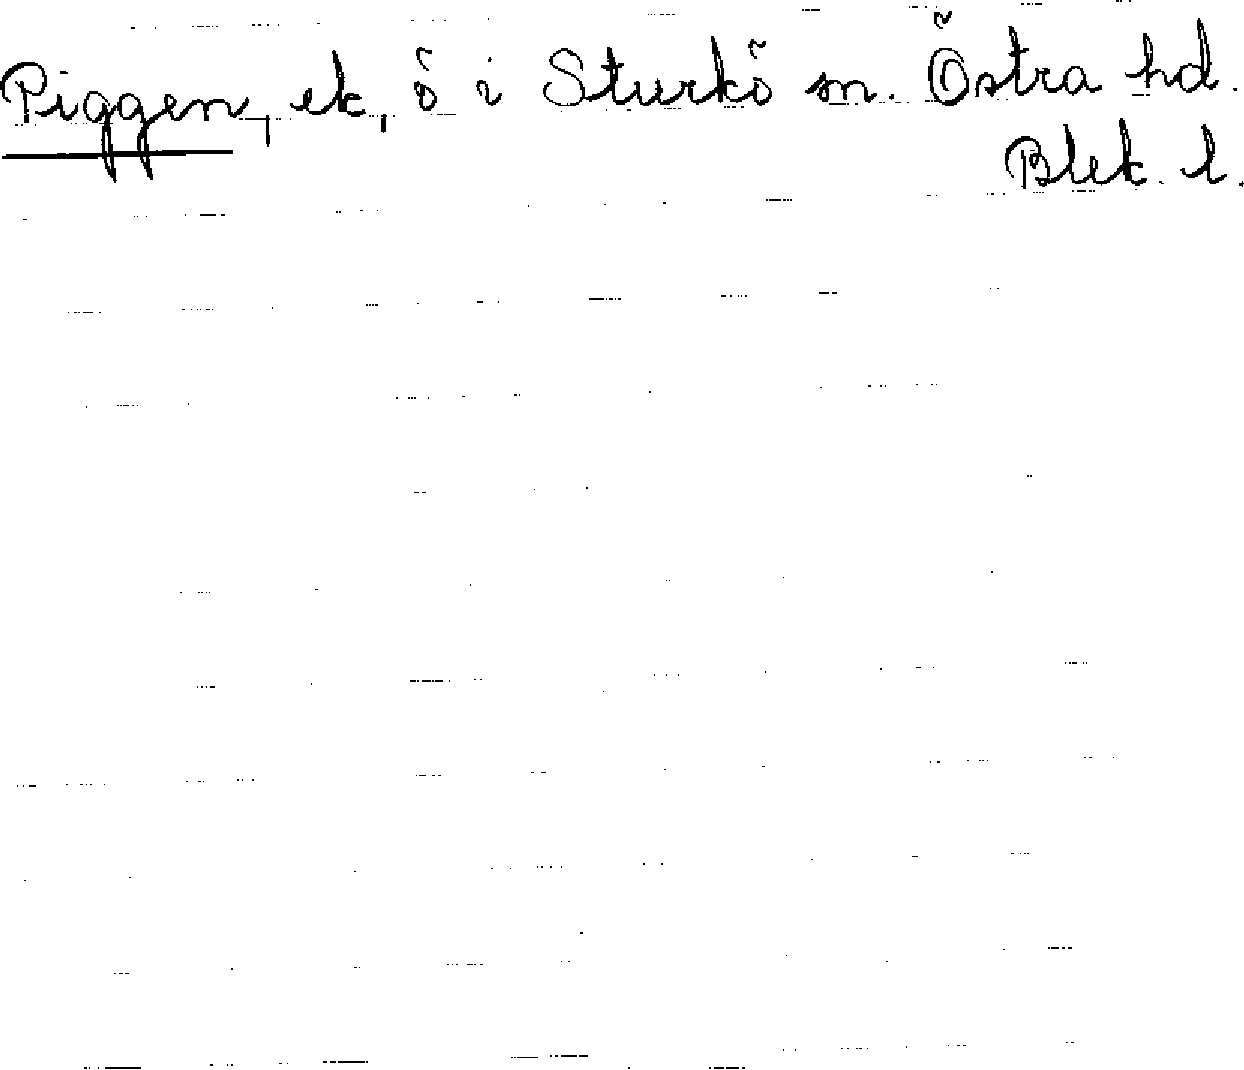 Piggen, ek, ö i Sturkö sn. Östra hd.
Blek. l.